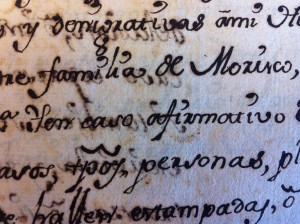 y denigrativas a mi
familia de Morisco,
Yen caso afirmativo
casos, tpõs, personas,
hallen estampadas,